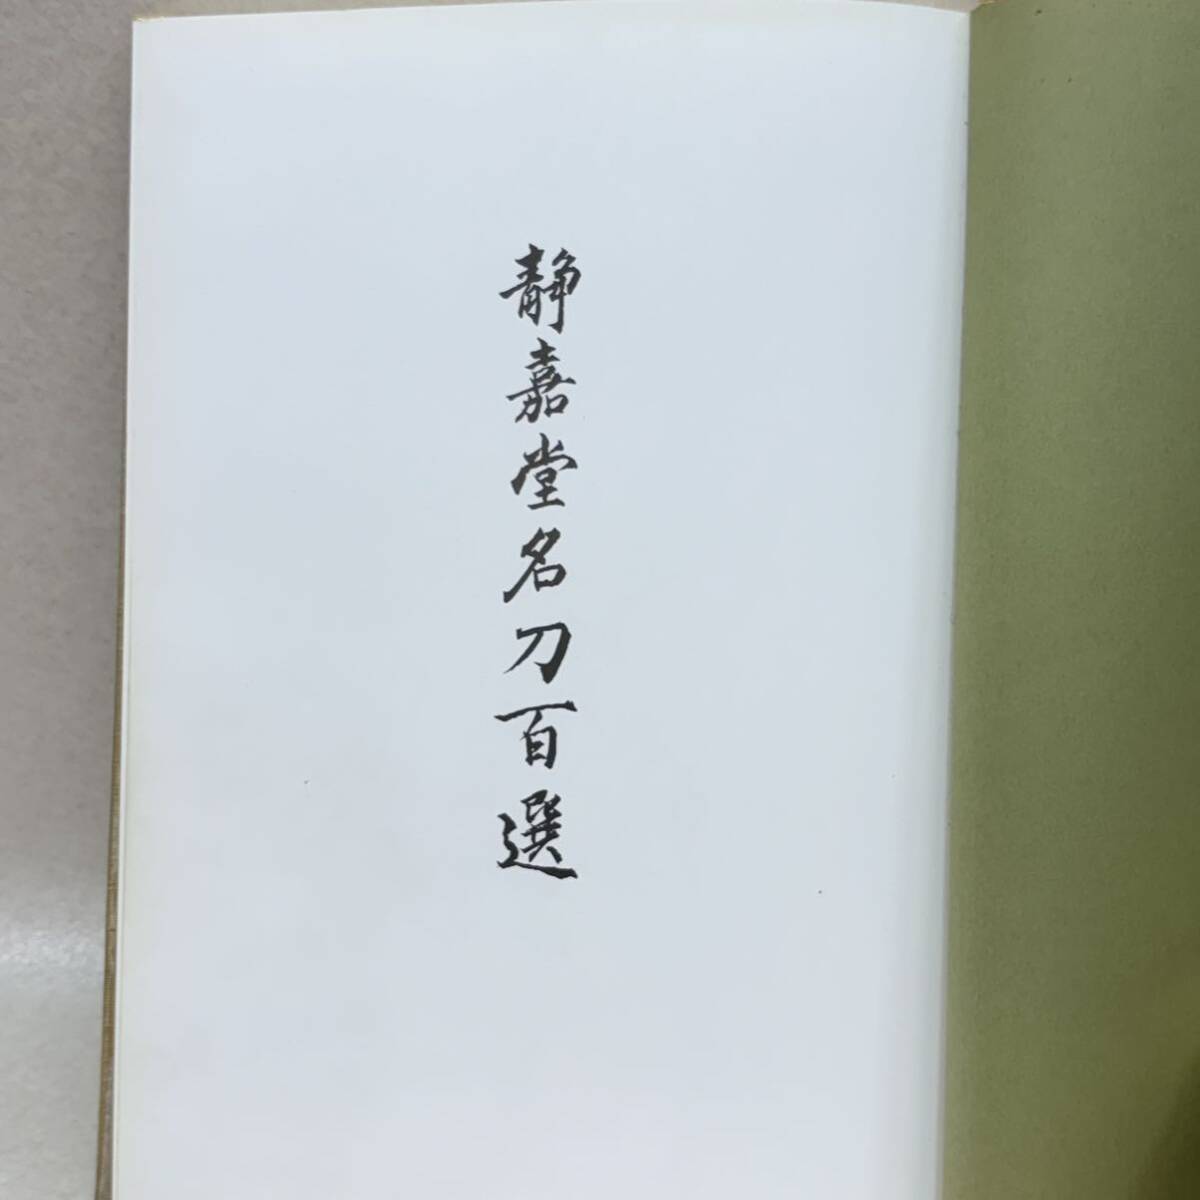 静嘉堂名刀百選